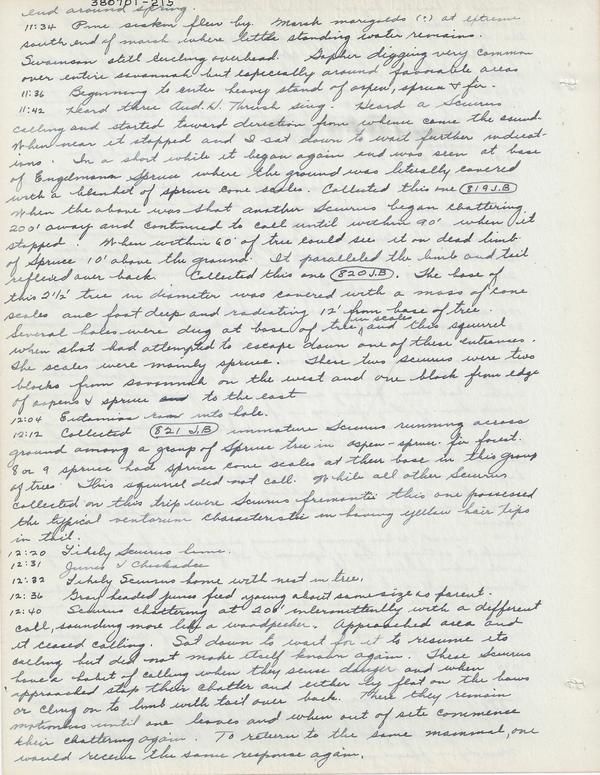 380701-215
end around spring.
11:34 Pine siskin flew by. Marsh marigolds (?) at extreme
south end of marsh where little standing water remains.
Swainson still circling overhead. Gopher digging very common
over entire savannah but especially around favorable areas
11:36 Beginning to enter heavy stand of aspen, spruce & fir.
11:42 Heard three Aud. H. Thrush sing. Heard a Sciurus
calling and started toward direction from whence came the sound.
When near it stopped and I sat down to wait further indicat-
ions. In a short while it began again and was seen at base
of Engelmann Spruce where the ground was literally covered
with a blanket of spruce cone scales. Collected this one (819 J.B)
When the above was shot another Sciurus began chattering
200' away and continued to call until within 90' when it
stopped. When within 60' of tree could see it on dead limb
of Spruce 10' above the ground. It paralleled the limb and tail
reflexed over back. Collected this one (820 J.B). The base of
this 2½' tree in diameter was covered with a mass of cone
scales one foot deep and radiating 12' from base of tree.
Several holes were dug at base of tree in scales, and this squirrel
when shot had attempted to escape down one of these entrances.
The scales were mainly spruce. These two sciurus were two
blocks from savannah on the west and one block from edge
of aspens & spruce to the east
12:04 Eutamias ran into hole.
12:12 Collected (821 J.B) immature Sciurus running across
ground among a group of Spruce tree in aspen-spruce-fir forest.
8 or 9 spruce had spruce cone scales at their base in this group
of trees. This squirrel did not call. While all other Sciurus
collected on this trip were Sciurus fremonti this one possessed
the typical ventorum characteristic in having yellow hair tips
in tail.
12:20 Likely Sciurus home.
12:31 Junco & Chickadee
12:32 Likely Sciurus home with nest in tree.
12:36 Gray headed junco feed young about same size as parent.
12:40 Sciurus chattering at 200' intermittently with a different
call, sounding more like a woodpecker. Approached area and
it ceased calling. Sat down to wait for it to resume its
calling but did not make itself known again. These Sciurus
have a habit of calling when they sense danger and when
approached stop their chatter and either lie flat on the bows
or cling on to limb with tail over back. There they remain
motionless until one leaves and when out of site commence
their chattering again. To return to the same mammal, one
would receive the same response again.